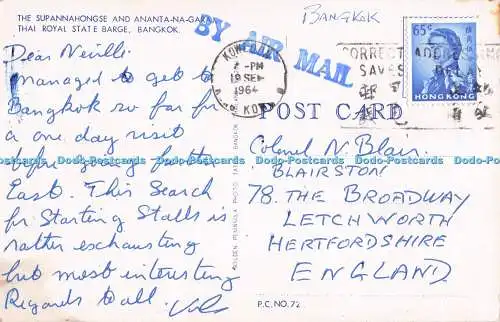 THE SUPANNAHONGSE AND ANANTA-NAGARAJ
THAI ROYAL STATE BARGE, BANGKOK.
BY AIR MAIL
BANGKOK
65¢
HONG KONG
-PM
19 SE
1964
KOWLOON
HONG KONG
CORRECT ADDRESSING
SAVES DELAY
POST CARD
Dear Neville
managed to get to
Bangkok so far for
a one day visit
before going further
East. This Search
for Starting Stalls is
rather exhausting
but most interesting
Regards to all.
Colonel N. Blair
BLAIRSTON
78. THE BROADWAY
LETCHWORTH
HERTFORDSHIRE
ENGLAND
GOLDEN PENINSULA PHOTO
BANGKOK
P.C. NO. 72
Dodo-Postcards Dodo-Postcards Dodo-Postcards Dodo-Postcards Dodo-Postcards